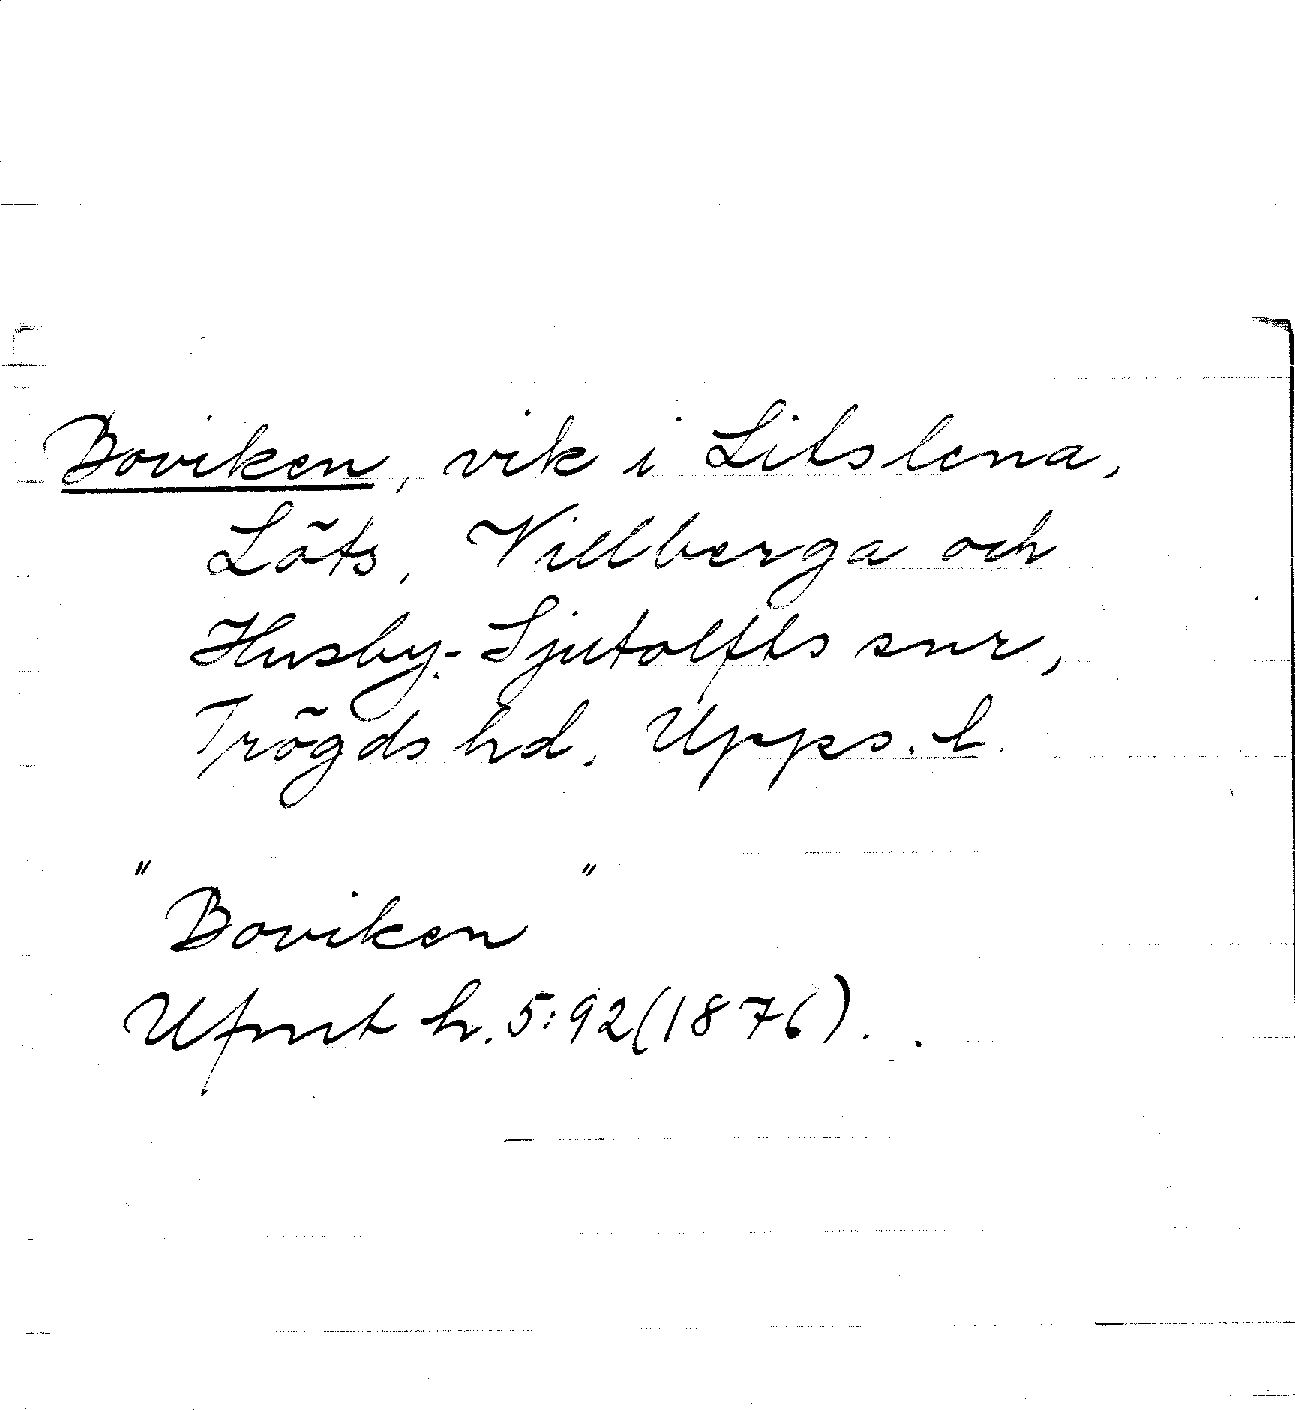 Boviken, vik i Litslena,
Löts, Villberga och
Husby-Sjutolfts snr,
Trögds hd. Upps. l.
"Boviken"
Ufmt h. 5:92(1876).